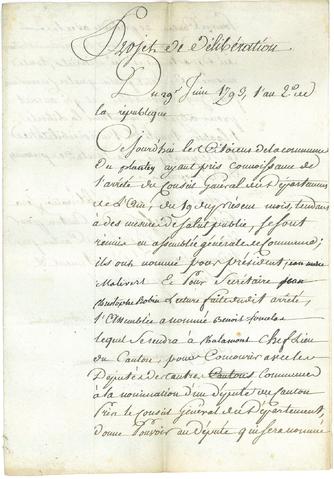 Projet de délibération
Du 29 Juin 1793, l'an 2.e de
la république
Ce jourd'hui les Citoiens de la commune
du plantey ayant pris connoissance de
l'arrêté du Conseil Général du Département
de l'Ain, du 19 du présent mois, tendant
à des mesures de salut public, se sont
réunis en assemblée générale de Commune;
ils ont nommé pour président jean
Et pour Secrétaire jean
Lecture faite dudit arrêté,
l'assemblée a nommé benoit
lequel se rendra à chalamont chef lieu
du Canton, pour Concourir avec les
Députés des autres Cantons Communes
à la nomination d'un député du Canton
Près le Conseil Général du Département,
donne Pouvoir au député qui sera nommé